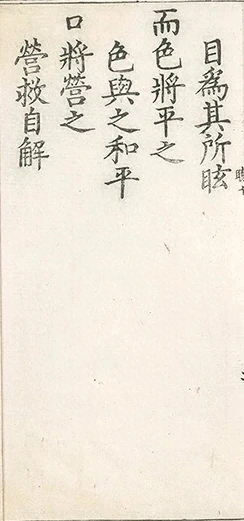 目為其所眩
而色將平之
色與之和平
口將營之
營救自解